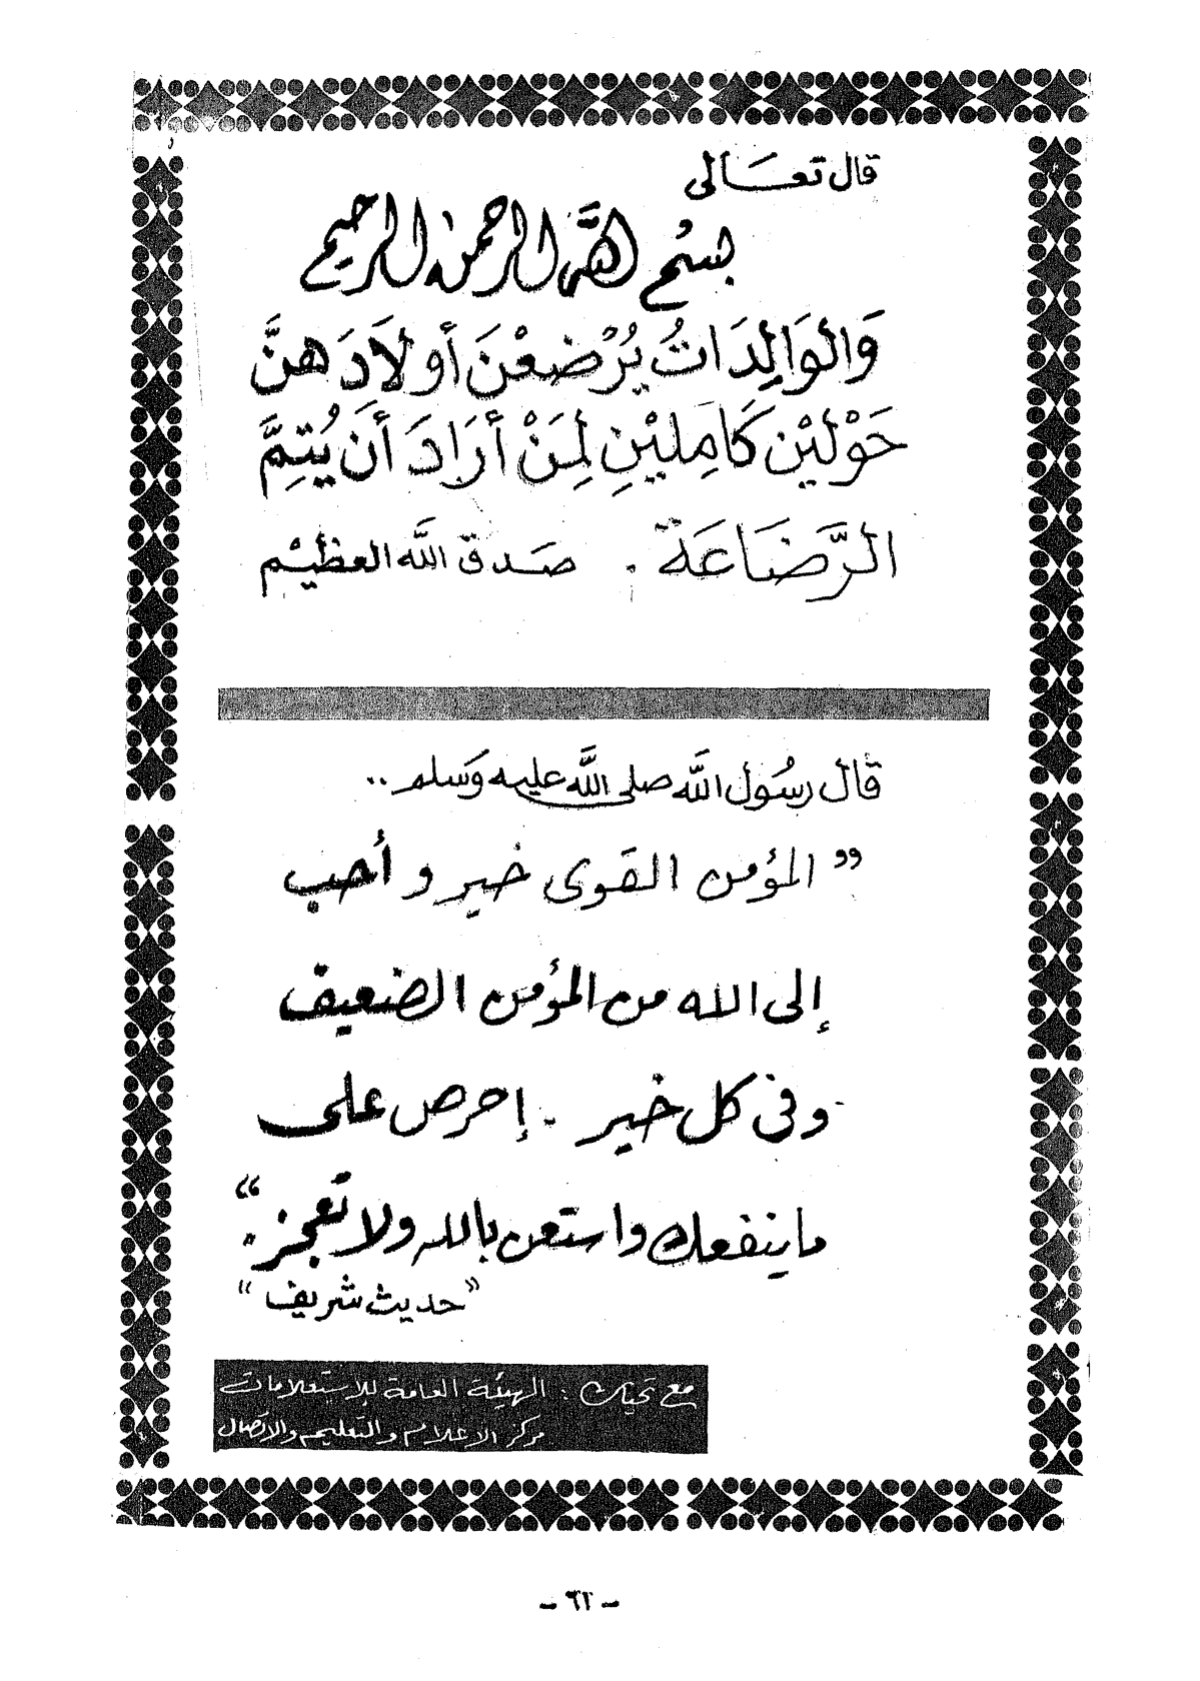 قال تعالى
بسم الله الرحمن الرحيم
وَالوَالِدَاتُ يُرْضعْنَ أولاَدَهنَّ
حَوْليْن كَامِليْنِ لِمَنْ أرَادَ أن يُتِمَّ
الرَّضَاعَة . صَدق اللَّه العظيْم
قال رسُول اللَّه صلى اللَّه عليه وَسلم ..
" المؤمن القوى خير و أحب
إلى الله من المؤمن الضعيف
وفى كل خير . إحرص على
ما ينفعك واستعن بالله ولا تعجز . "
" حديث شريف "
مع تحيات : الهيئة العامة للاستعلامات
مركز الاعلام والتعليم والاتصال
- ٦٢ -